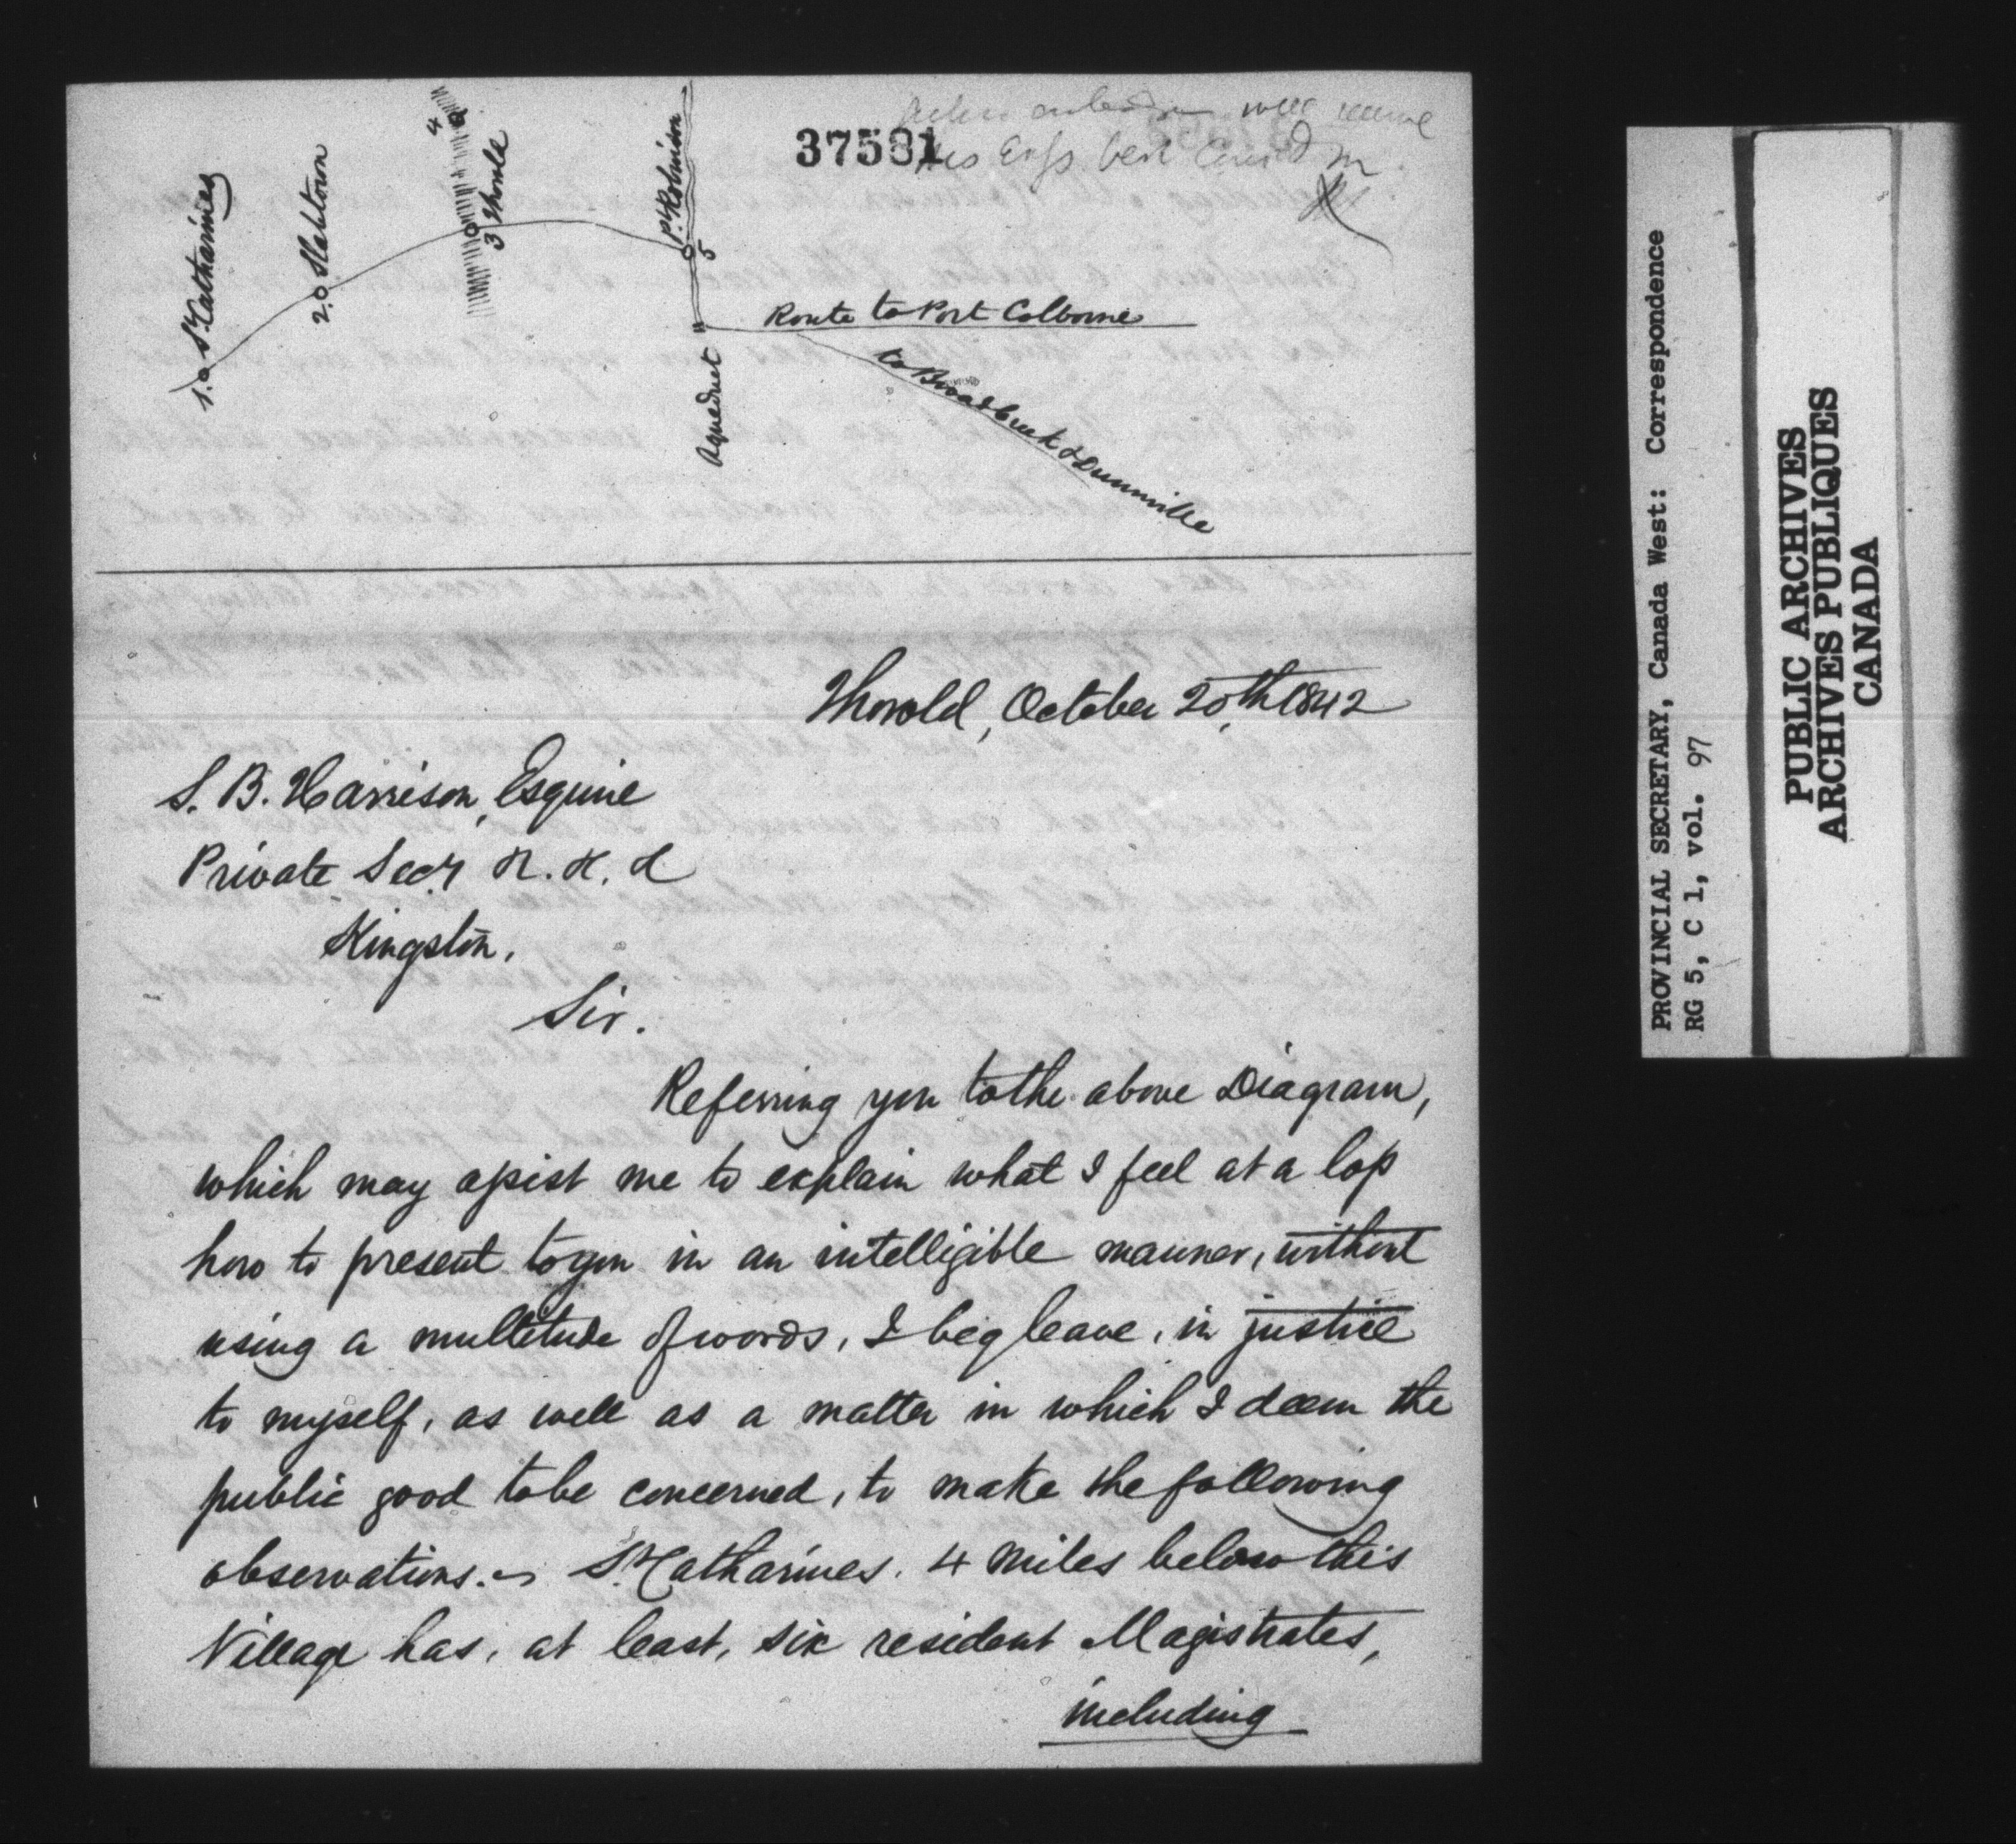 37581
will receive
his Exys best Consid
1. St Catharines
2. Slabtown
3 Thorold
4
Pt Robinson
5
Aqueduct
Route to Port Colborne
to Broad Creek & Dunnville
Thorold, October 20th 1842
S. B. Harrison, Esquire
Private Secy
Kingston.
Sir.
Referring you to the above Diagram,
which may assist me to explain what I feel at a loss
how to present to you in an intelligible manner, without
using a multitude of words, I beg leave, in justice
to myself, as well as a matter in which I deem the
public good to be concerned, to make the following
observations. St Catharines. 4 miles below this
Village has, at least, six resident Magistrates,
including
PROVINCIAL SECRETARY, Canada West: Correspondence
RG 5, C 1, vol. 97
PUBLIC ARCHIVES
ARCHIVES PUBLIQUES
CANADA